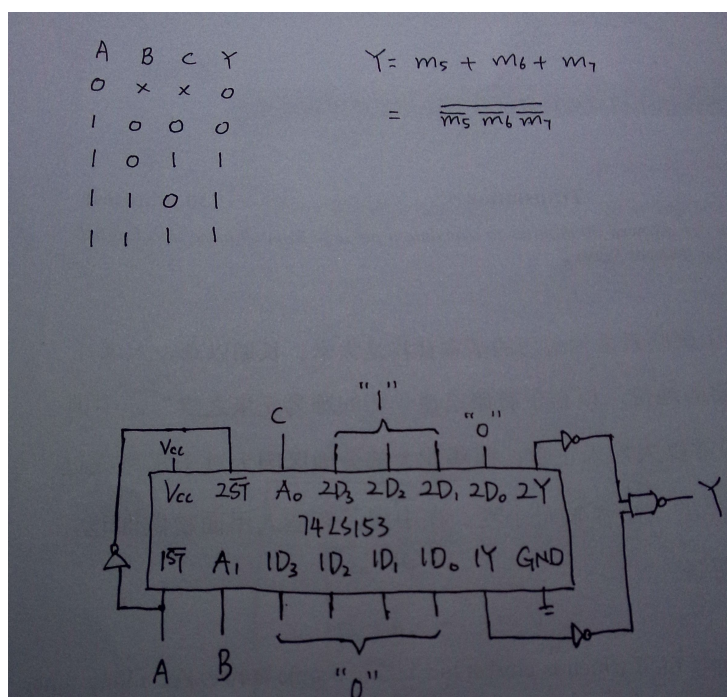 A B C Y
0 × × 0
1 0 0 0
1 0 1 1
1 1 0 1
1 1 1 1
Y = m5 + m6 + m7
= \overline{\overline{m5} \overline{m6} \overline{m7}}
"1"
C "0"
Vcc
Vcc 2S̅T̅ A0 2D3 2D2 2D1 2D0 2Y
Y
74LS153
1S̅T̅ A1 1D3 1D2 1D1 1D0 1Y GND
A B "0"